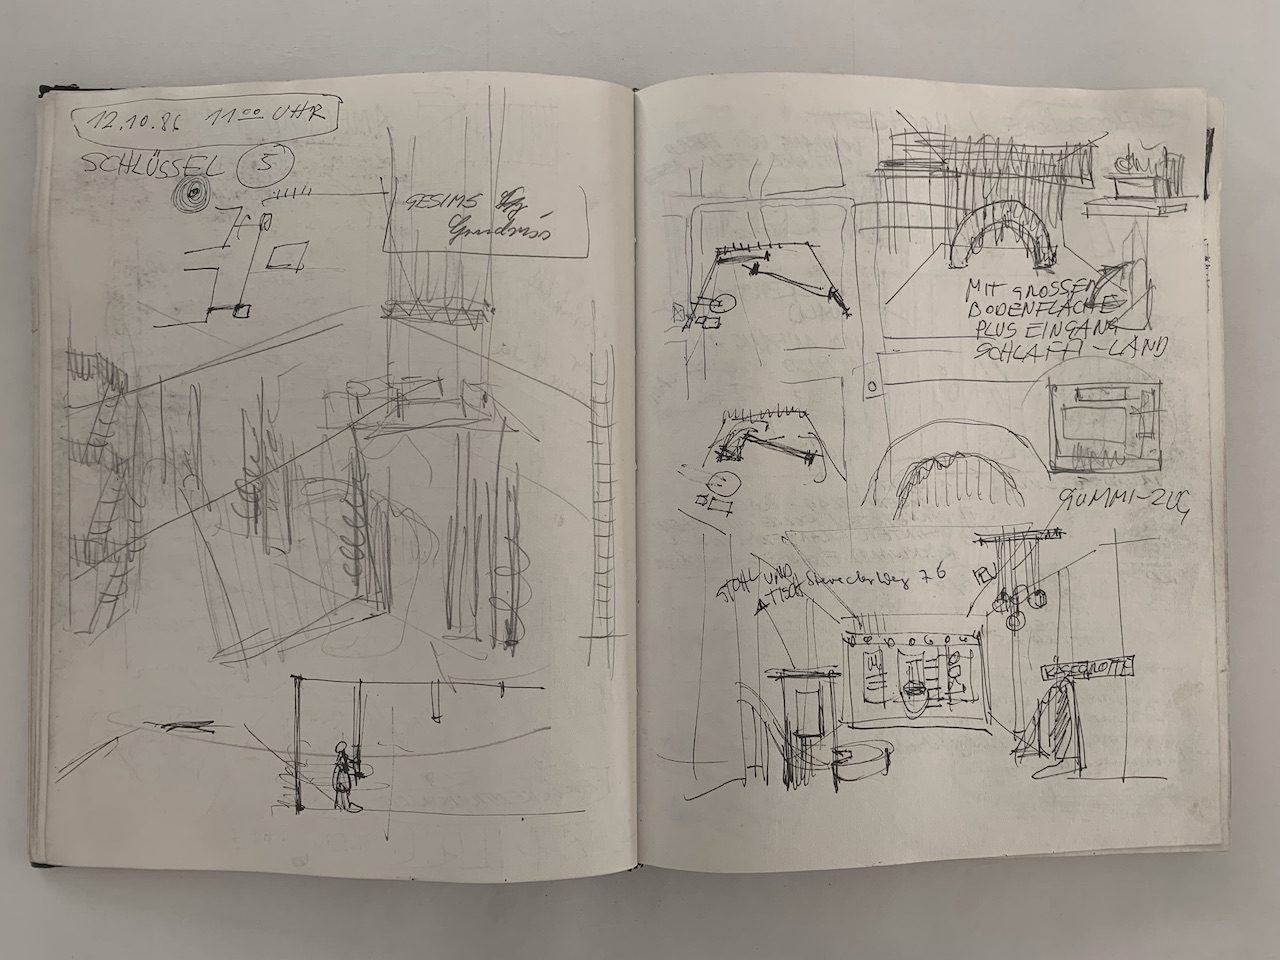 12.10.86 11 00 UHR
SCHLÜSSEL 5
GESIMS
Grundriss
MIT GROSSEN
BODENFLÄCHE
PLUS EINGANG
SCHLAFFI-LAND
GUMMI-ZUG
STUHL UND
TISCH
76